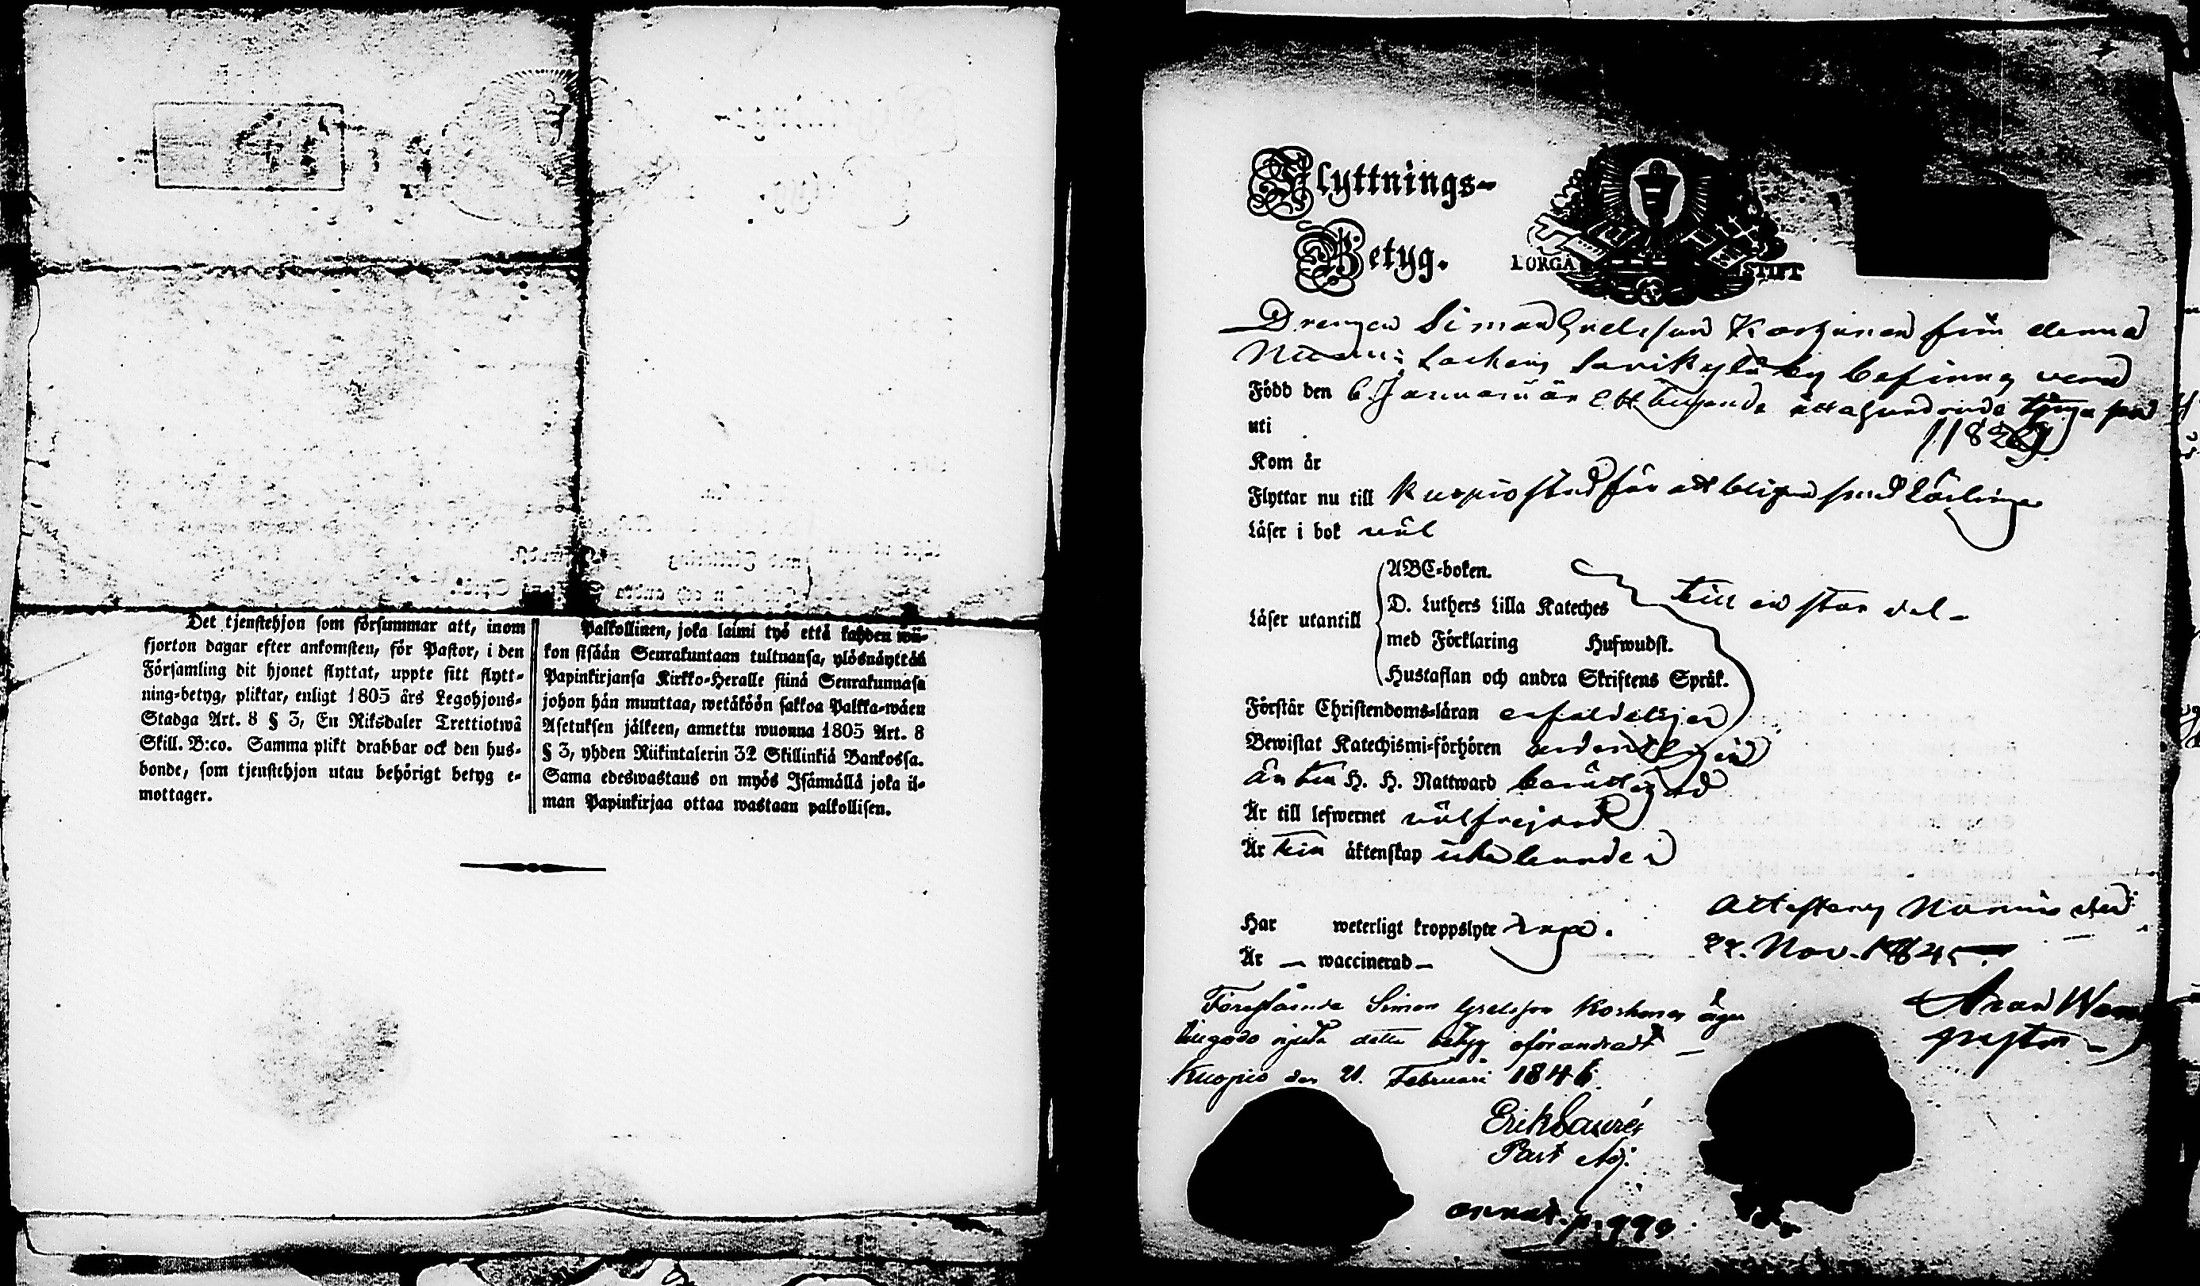 Det tjenstehjon som försummar att, inom
fjorton dagar efter ankomsten, för Pastor, i den
Församling dit hjonet flyttat, uppte sitt flytt-
ning-betyg, pliktar, enligt 1805 års Legohjons-
Stadga Art. 8 § 3, En Riksdaler Trettiotwå
Skill. B:co. Samma plikt drabbar ock den hus-
bonde, som tjenstehjon utan behörigt betyg e-
mottager.
Palkollinen, joka laimi työ että kahden wii-
kon sisään Seurakuntaan tultuansa, ylösnäyttää
Papinkirjansa Kirkko-Heralle siinä Seurakunnasa
johon hän muuttaa, wetäköön sakkoa Palkka-wäen
Asetuksen jälkeen, annettu wuonna 1805 Art. 8
§ 3, yhden Riikintalerin 32 Skillinkiä Bankossa.
Sama edeswastaus on myös Isännällä joka il-
man Papinkirjaa ottaa wastaan palkollisen.
Flyttnings-
Betyg.
BORGÅ STIFT
Drengen Simon Korhonen från denna
Sockens Savikylä by
Född den 6 Januarii år Ett tusende åttahundrade tjugu
182
uti
Kom år
Flyttar nu till Kuopio stad för att blifva smed Lärlinge
Läser i bok väl
ABC-boken.
Läser utantill D. Luthers Lilla Kateches till en stor del
med Förklaring Hufwudst.
Hustaflan och andra Skriftens Språk.
Förstår Christendoms-läran enfaldeligen
Bewistat Katechismi-förhören ordenteligen
Är till H. H. Nattward berättigad
Är till lefwernet välfrejdad
Är till äktenskap icke bunden
Har weterligt kroppslyte inga.
Är — waccinerad —
Attesterar den
22. Nov. 1845.
Pastor
Förestående Simon Korhonen äger
tillgodo njuta detta betyg oförandradt —
Kuopio den 21. Februari 1846.
Erik
Past Adj.
annot. p. 990